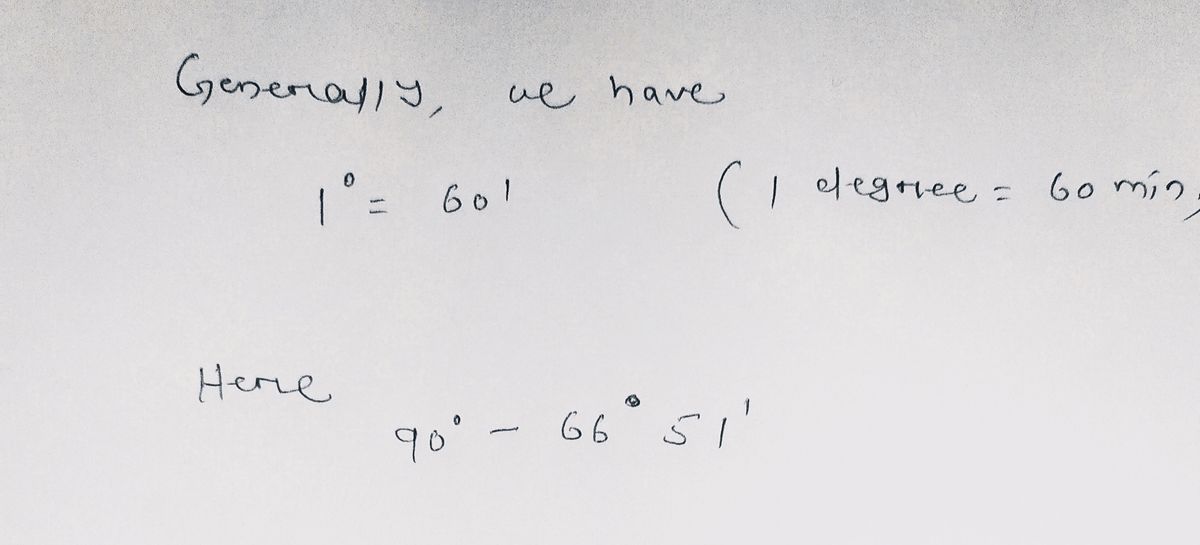 Generally, we have
1° = 60' (1 degree = 60 min,
Here
90° - 66° 51'